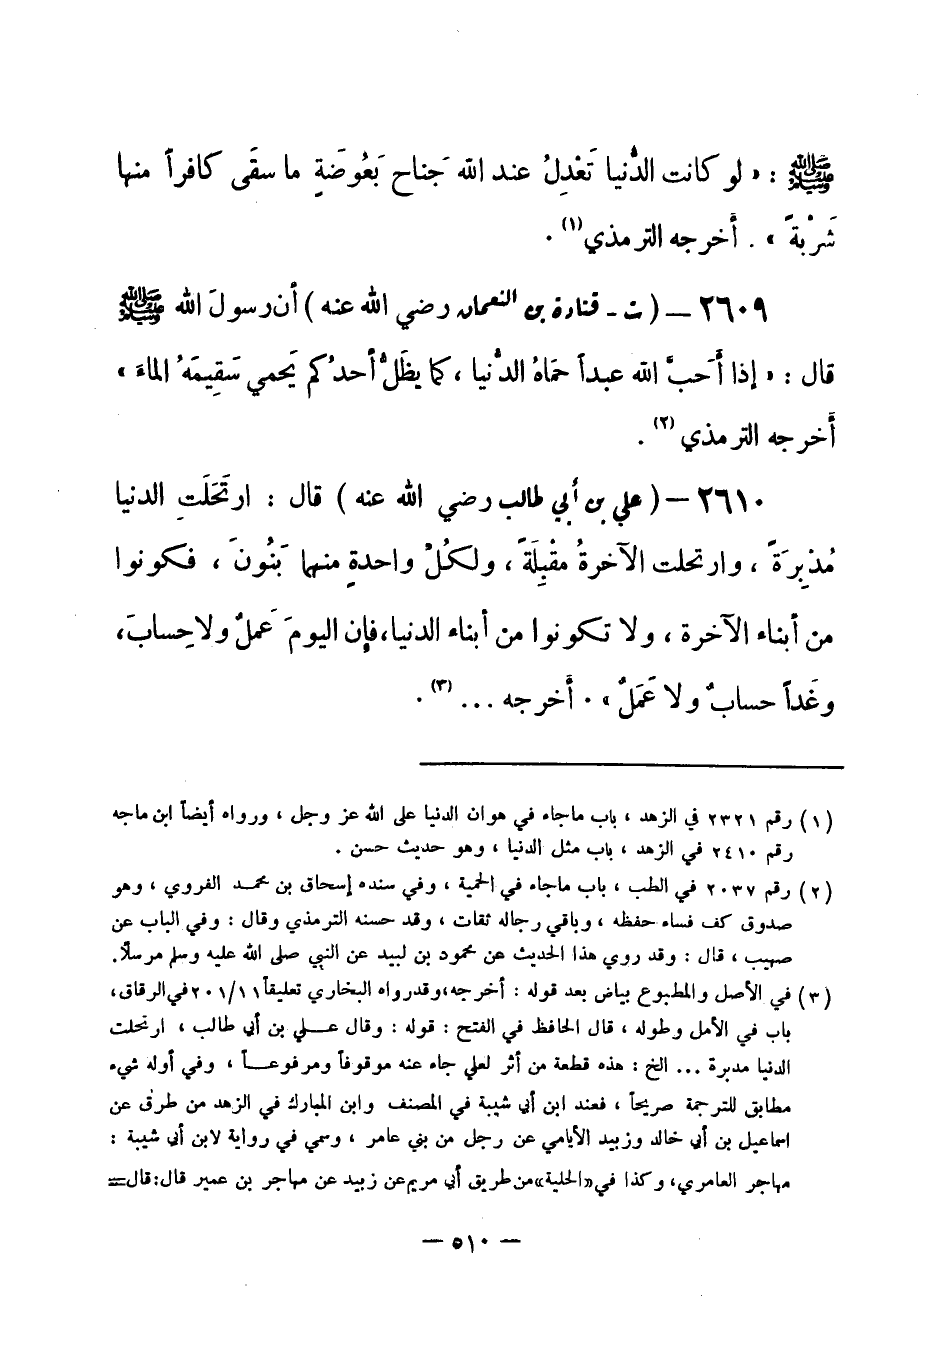 ﷺ : « لو كانت الدُّنيا تَعْدِلُ عند الله جَناح بَعُوضَةٍ ما سقَى كافراً منها
شَرْبةً » . أخرجه الترمذي (١) .
٢٦٠٩ – ( ت - قتادة بن النعمان رضي الله عنه ) أن رسولَ الله ﷺ
قال : « إذا أَحَبَّ الله عبداً حمَاهُ الدُّنيا ، كما يظَلُّ أحدُكم يَحمي سَقِيمَهُ الماءَ »
أخرجه الترمذي (٢) .
٢٦١٠ – ( علي بن أبي طالب رضي الله عنه ) قال : ارتَحَلَتِ الدنيا
مُدْبِرَةً ، وارتحلت الآخرةُ مقْبِلَةً ، ولكلِّ واحدةٍ منهما بَنُونَ ، فكونوا
من أبناء الآخرة ، ولا تكونوا من أبناء الدنيا، فإن اليومَ عَملٌ ولا حِسابَ،
وغَداً حسابٌ ولا عَمَلٌ » . أخرجه ... (٣) .
(١) رقم ٢٣٢١ في الزهد ، باب ماجاء في هوان الدنيا على الله عز وجل ، ورواه أيضاً ابن ماجه
رقم ٢٤١٠ في الزهد ، باب مثل الدنيا ، وهو حديث حسن .
(٢) رقم ٢٠٣٧ في الطب ، باب ماجاء في الحمية ، وفي سنده إسحاق بن محمد الفروي ، وهو
صدوق كف فساء حفظه ، وباقي رجاله ثقات ، وقد حسنه الترمذي وقال : وفي الباب عن
صهيب ، قال : وقد روي هذا الحديث عن محمود بن لبيد عن النبي صلى الله عليه وسلم مرسلاً.
(٣) في الأصل والمطبوع بياض بعد قوله : أخرجه، وقد رواه البخاري تعليقاً ٢٠١/١١ في الرقاق،
باب في الأمل وطوله ، قال الحافظ في الفتح : قوله : وقال علي بن أبي طالب ، ارتحلت
الدنيا مدبرة ... الخ : هذه قطعة من أثر لعلي جاء عنه موقوفاً ومرفوعاً ، وفي أوله شيء
مطابق للترجمة صريحاً ، فعند ابن أبي شيبة في المصنف وابن المبارك في الزهد من طرق عن
اسماعيل بن أبي خالد وزبيد الأيامي عن رجل من بني عامر ، وسمي في رواية لابن أبي شيبة :
مهاجر العامري، وكذا في «الحلية» من طريق أبي مريم عن زبيد عن مهاجر بن عمير قال: قال=
– ٥١٠ –